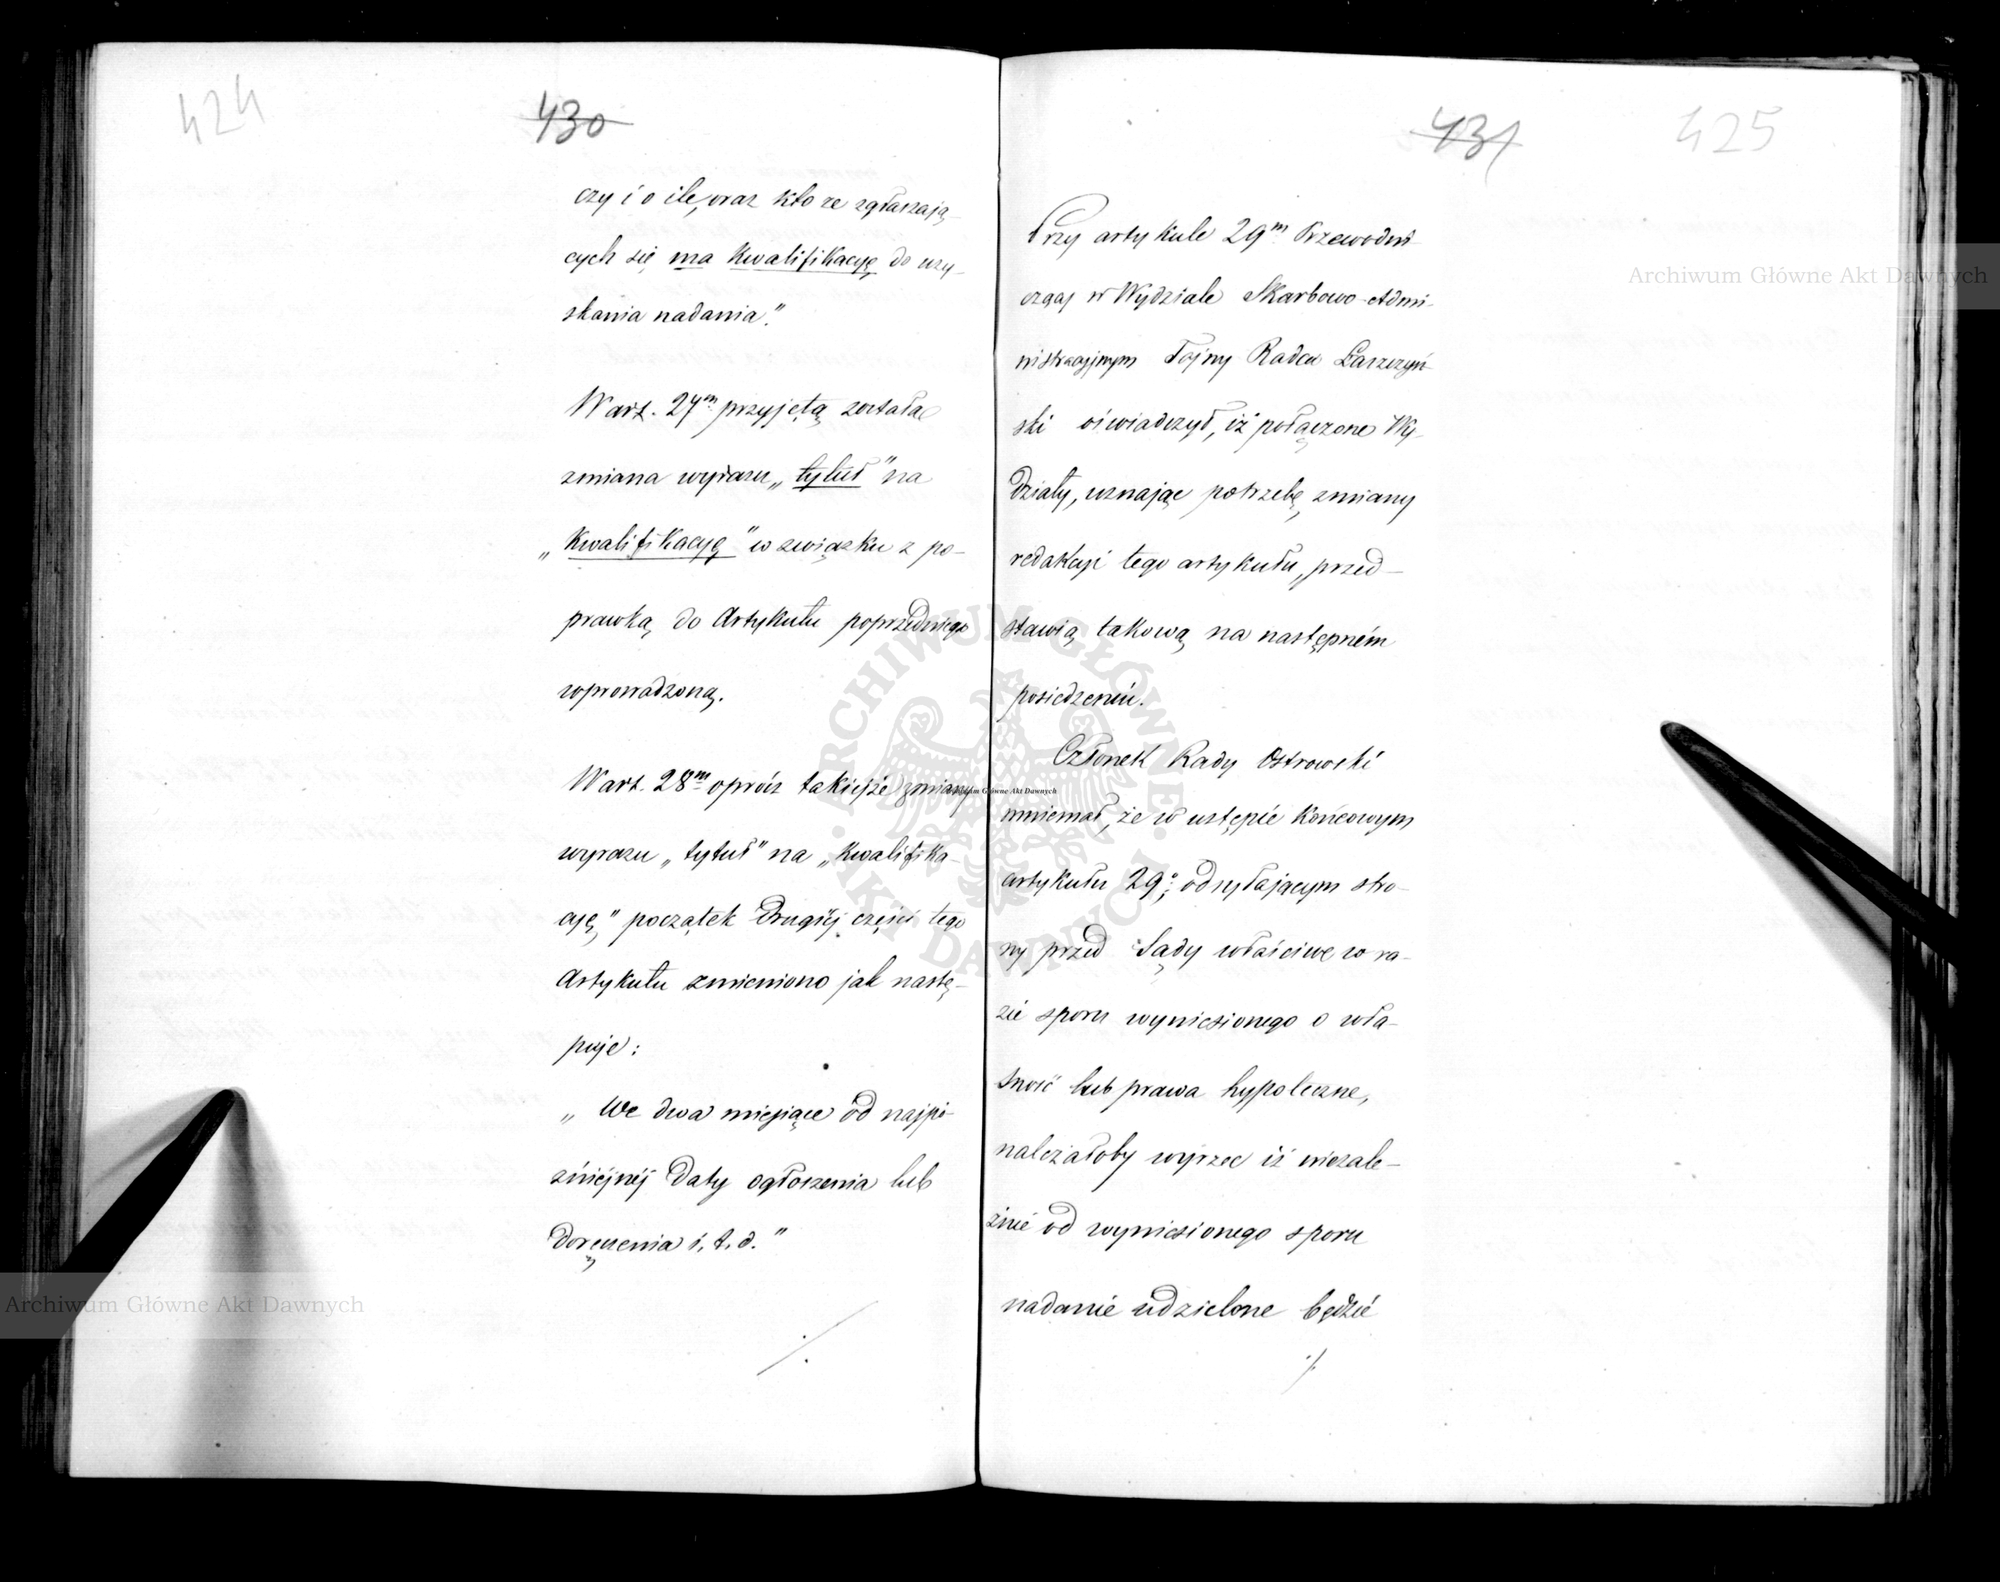 424
430
czy i o ile, oraz kto ze zgłaszają-
cych się ma kwalifikacyę do uzy-
skania nadania."
W art. 27m przyjętą została
zmiana wyrazu „tytuł" na
„kwalifikacyę" w związku z po-
prawką do Artykułu poprzedniego
wprowadzoną.
W art. 28m oprócz takiejże zmiany
wyrazu „tytuł" na „kwalifika-
cyę" początek drugiéj części tego
Artykułu zmieniono jak nastę-
puje:
„We dwa miesiące od najpó-
źniéjnéj daty ogłoszenia lub
doręczenia i. t. d."
431
425
Przy artykule 29m Przewodni-
czący w Wydziale Skarbowo-Admi-
nistracyjnym Tajny Radca Łaszczyń-
ski oświadczył, iż połączone Wy-
działy, uznając potrzebę zmiany
redakcyi tego artykułu, przed-
stawią takową na następném
posiedzeniu.
Członek Rady Ostrowski
mniemał, że w ustępie końcowym
artykułu 29o, odsyłającym stro-
ny przed Sądy właściwe w ra-
zie sporu wyniesionego o wła-
sność lub prawa hypoteczne,
należałoby wyrzec iż niezale-
żnie od wyniesionego sporu
nadanie udzielone będzie
Archiwum Główne Akt Dawnych
Archiwum Główne Akt Dawnych
Archiwum Główne Akt Dawnych
ARCHIWUM GŁÓWNE · AKT DAWNYCH ·